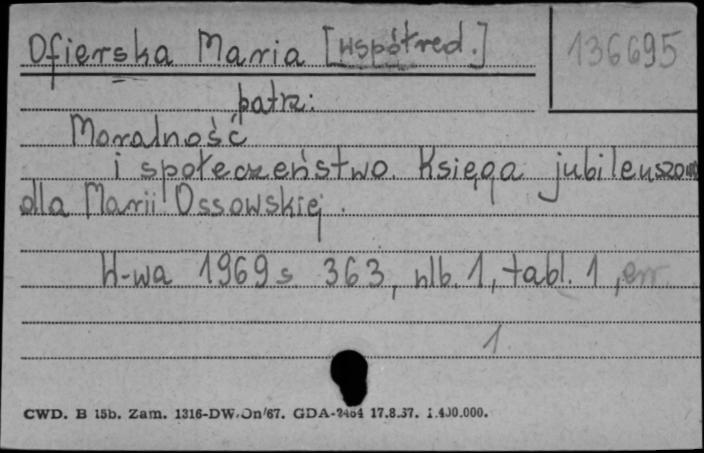 Ofierska Maria [współred.]
136695
patrz:
Moralność
i społeczeństwo. Księga jubileuszowa
dla Marii Ossowskiej.
W-wa 1969 s 363, nlb. 1, tabl. 1, err.
1.
CWD. B 15b. Zam. 1316-DW. On/67. GDA-2464 17.8.67. 1.400.000.